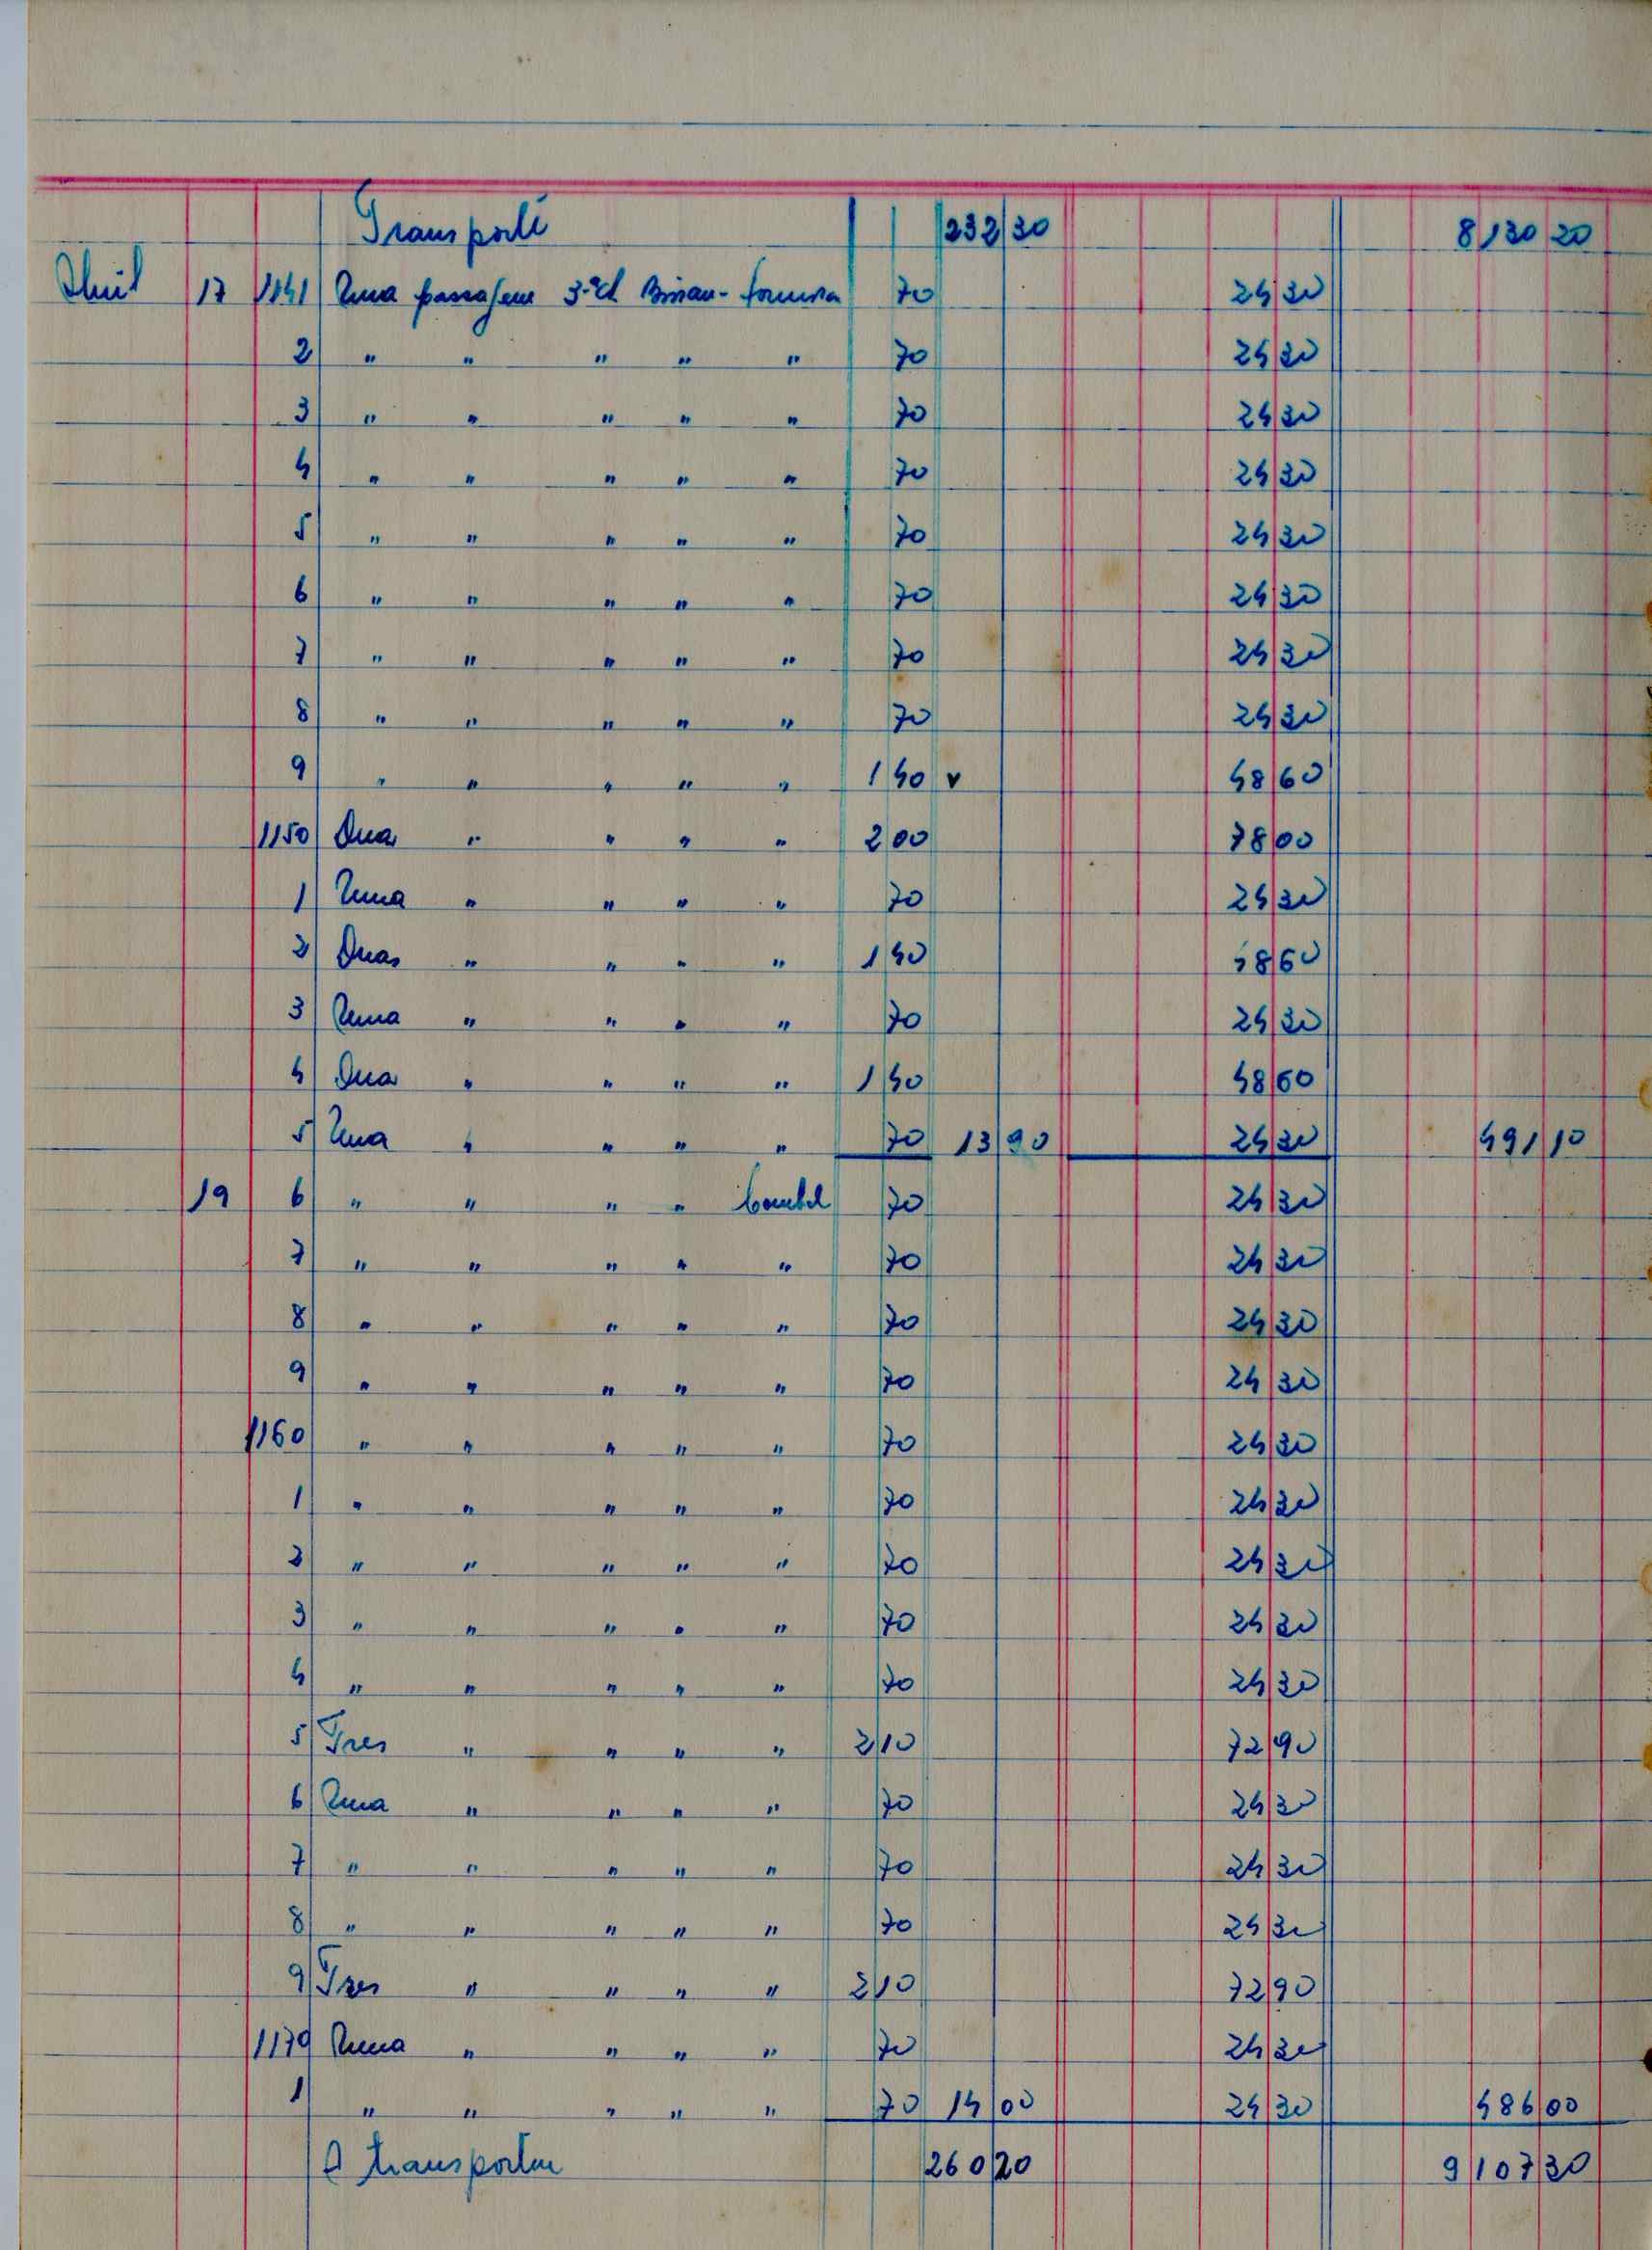 Transporte 232 30 8130 20
Abril 17 1141 Uma passagem 3ª cl Bissau- 70 24 30
2 " " " " " 70 24 30
3 " " " " " 70 24 30
4 " " " " " 70 24 30
5 " " " " " 70 24 30
6 " " " " " 70 24 30
7 " " " " " 70 24 30
8 " " " " " 70 24 30
9 " " " " " 1 40 v 48 60
1150 Duas " " " " 2 00 78 00
1 Uma " " " " 70 24 30
2 Duas " " " " 1 40 48 60
3 Uma " " " " 70 24 30
4 Duas " " " " 1 40 48 60
5 Uma " " " " 70 13 90 24 30 491 10
19 6 " " " " 70 24 30
7 " " " " " 70 24 30
8 " " " " " 70 24 30
9 " " " " " 70 24 30
1160 " " " " " 70 24 30
1 " " " " " 70 24 30
2 " " " " " 70 24 30
3 " " " " " 70 24 30
4 " " " " " 70 24 30
5 Tres " " " " 2 10 72 90
6 Uma " " " " 70 24 30
7 " " " " " 70 24 30
8 " " " " " 70 24 30
9 Tres " " " " 2 10 72 90
1170 Uma " " " " 70 24 30
1 " " " " " 70 14 00 24 30 486 00
A transportar 260 20 9107 30